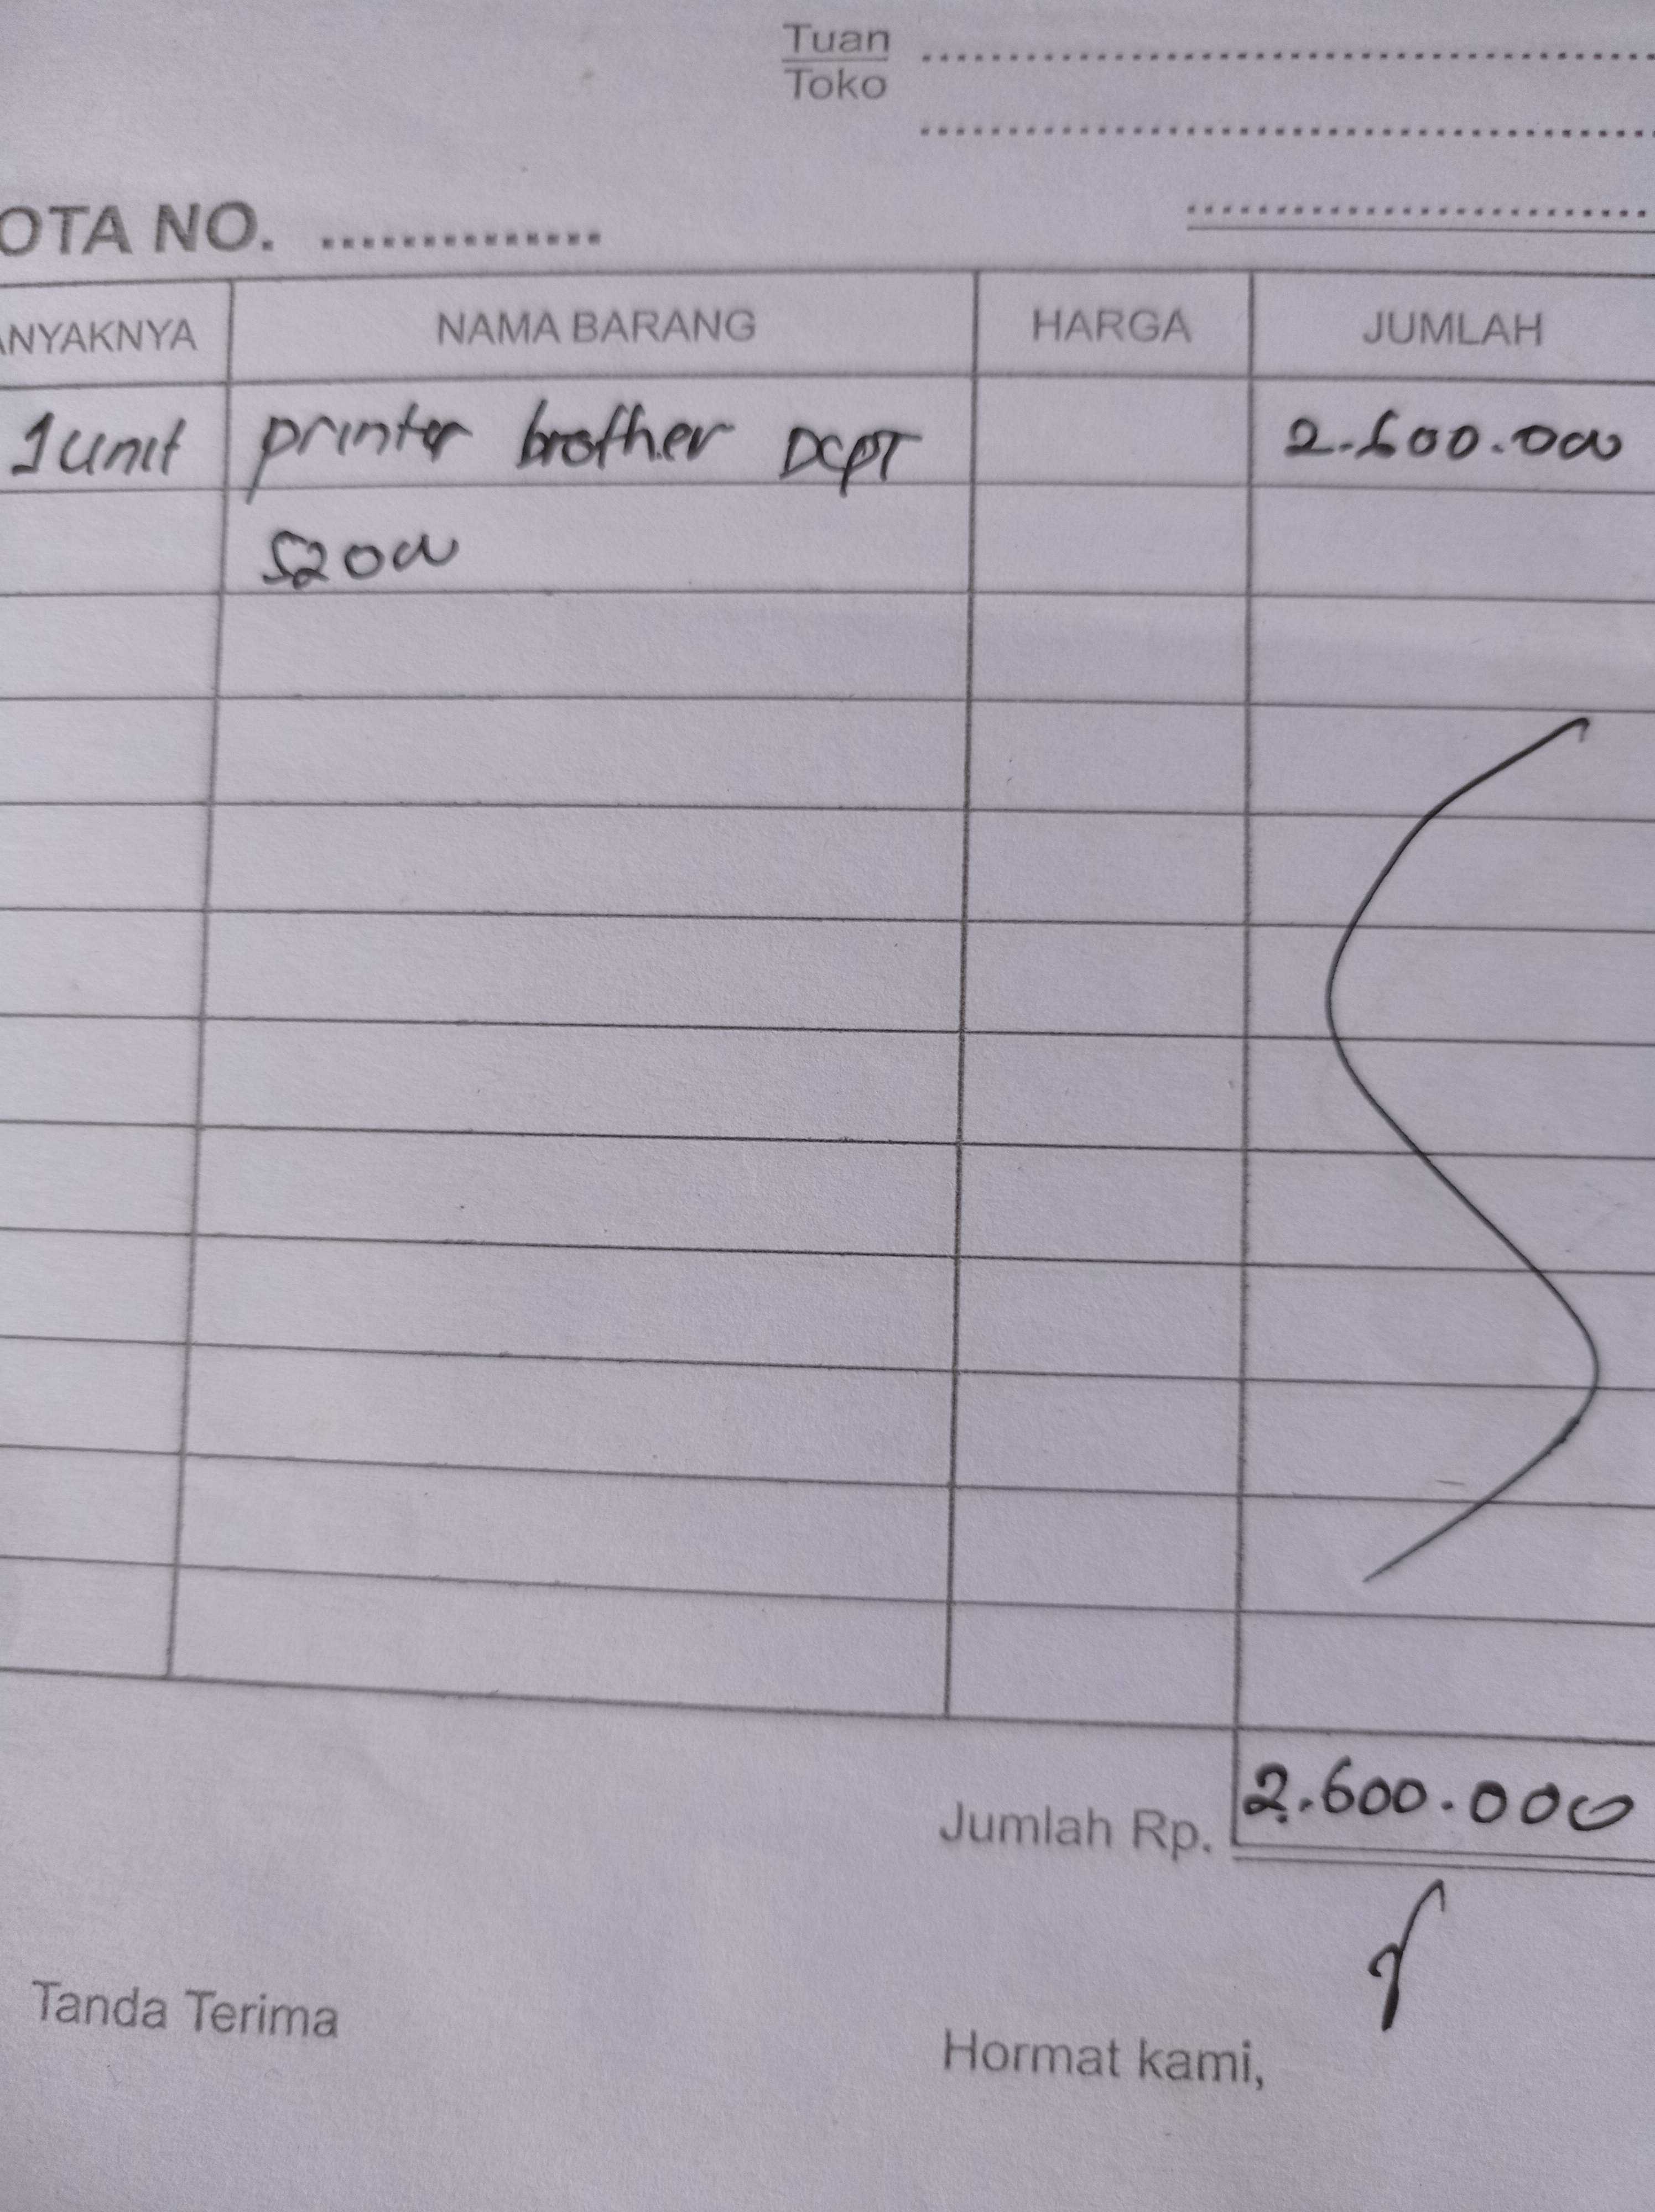 Tuan
Toko
OTA NO. ...............
ANYAKNYA NAMA BARANG HARGA JUMLAH
1 unit printer brother DCPT 2.600.000
520W
Jumlah Rp. 2.600.000
Tanda Terima
Hormat kami,